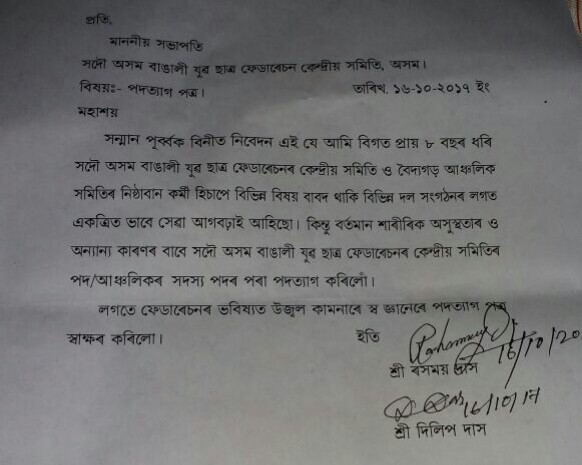 প্ৰতি,
মাননীয় সভাপতি
সদৌ অসম বাঙালী যুৱ ছাত্ৰ ফেডাৰেচন কেন্দ্ৰীয় সমিতি, অসম।
বিষয়ঃ- পদত্যাগ পত্ৰ। তাৰিখ. ১৬-১০-২০১৭ ইং
মহাশয়
সন্মান পূৰ্ব্বক বিনীত নিবেদন এই যে আমি বিগত প্ৰায় ৮ বছৰ ধৰি
সদৌ অসম বাঙালী যুৱ ছাত্ৰ ফেডাৰেচনৰ কেন্দ্ৰীয় সমিতি ও বৈদ্যগড় আঞ্চলিক
সমিতিৰ নিষ্ঠাবান কৰ্মী হিচাপে বিভিন্ন বিষয় বাবদ থাকি বিভিন্ন দল সংগঠনৰ লগত
একত্ৰিত ভাবে সেৱা আগবঢ়াই আহিছো। কিন্তু বৰ্তমান শাৰীৰিক অসুস্থতাৰ ও
অন্যান্য কাৰণৰ বাবে সদৌ অসম বাঙালী যুৱ ছাত্ৰ ফেডাৰেচনৰ কেন্দ্ৰীয় সমিতিৰ
পদ/আঞ্চলিকৰ সদস্য পদৰ পৰা পদত্যাগ কৰিলোঁ।
লগতে ফেডাৰেচনৰ ভবিষ্যত উজ্বল কামনাৰে স্ব জ্ঞানেৰে পদত্যাগ পত্ৰ
স্বাক্ষৰ কৰিলো। ইতি
16/10/20
শ্ৰী ৰসময় দাস
D. Das 16/10/17
শ্ৰী দিলিপ দাস